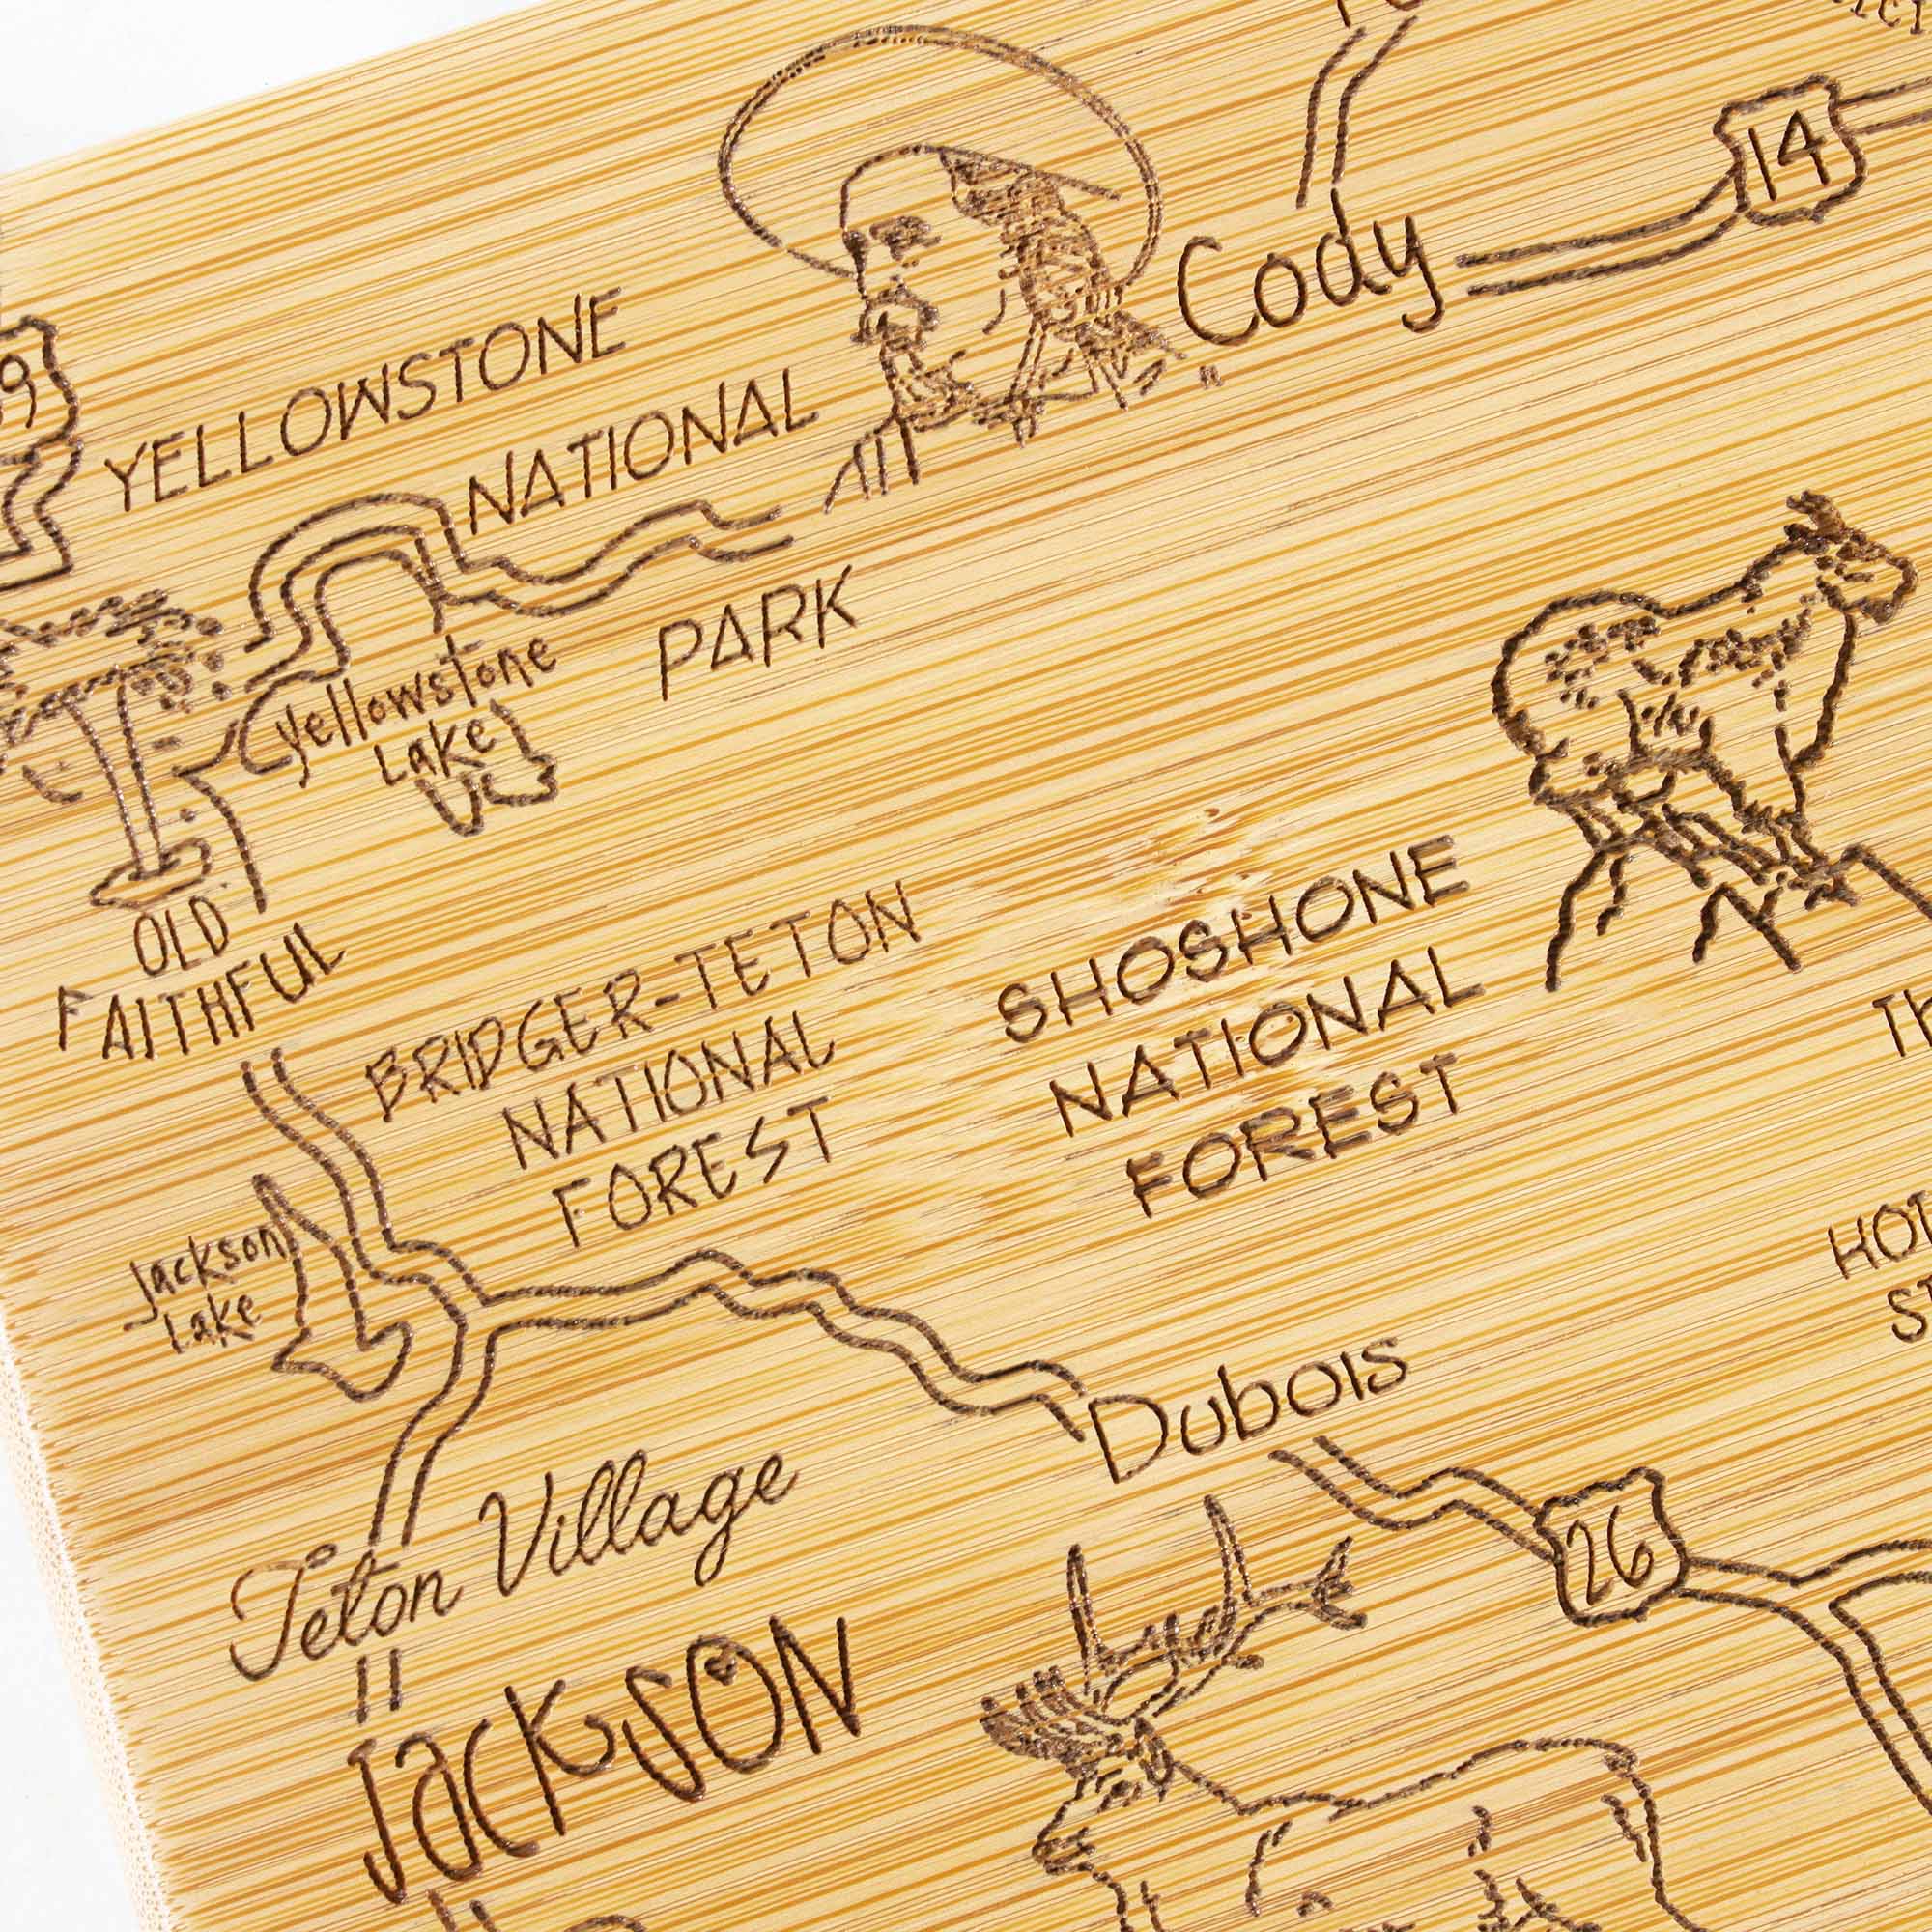 14
Cody
YELLOWSTONE
NATIONAL
PARK
Yellowstone
Lake
OLD
FAITHFUL
BRIDGER-TETON
NATIONAL
FOREST
SHOSHONE
NATIONAL
FOREST
Jackson
Lake
HOT
Dubois
26
Teton Village
JacKSON